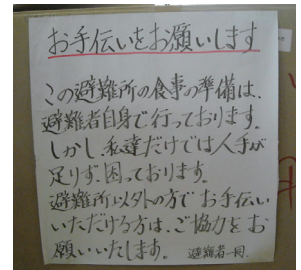 お手伝いをお願いします
この避難所の食事の準備は、
避難者自身で行っております。
しかし、私達だけでは人手が
足りず、困っております。
避難所以外の方でお手伝い
いただける方は、ご協力をお
願いいたします。 避難者一同.